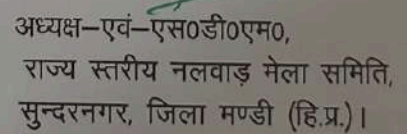 अध्यक्ष–एवं–एस0डी0एम0,
राज्य स्तरीय नलवाड़ मेला समिति,
सुन्दरनगर, जिला मण्डी (हि.प्र.)।